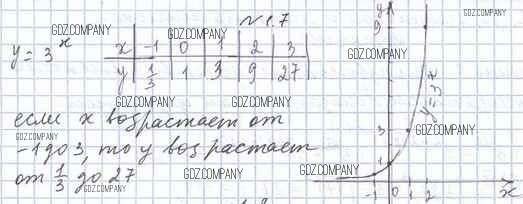 № 1.7
y = 3^x
x | -1 | 0 | 1 | 2 | 3
y | 1/3 | 1 | 3 | 9 | 27
если x возрастает от
-1 до 3, то y возрастает
от 1/3 до 27
y
9
3
1
-1 0 1 2 x
y=3^x
GDZ.COMPANY
GDZ.COMPANY
GDZ.COMPANY
GDZ.COMPANY
GDZ.COMPANY
GDZ.COMPANY
GDZ.COMPANY
GDZ.COMPANY
GDZ.COMPANY
GDZ.COMPANY